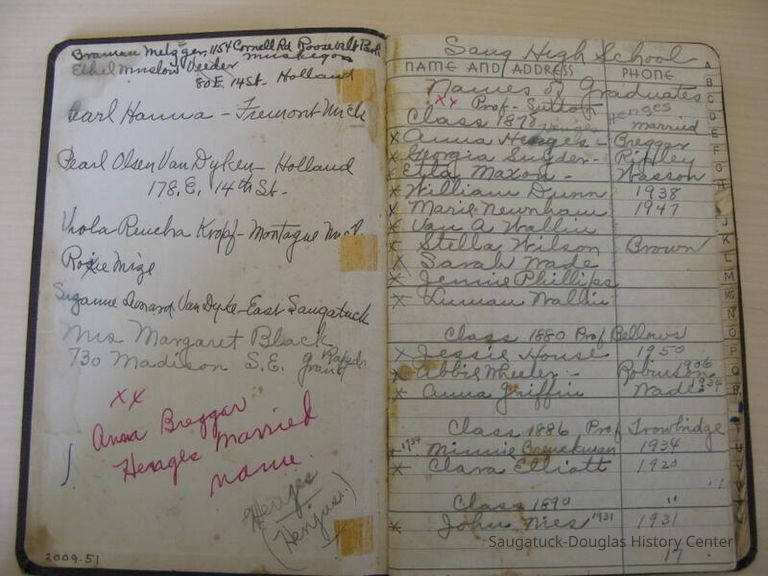 Braman Metzger, 1154 Cornell Rd Roosevelt Park
Muskegon
Ethel Winslow Veeder
80 E. 14 St- Holland
Pearl Hanna - Fremont Mich
Pearl Olsen Van Dyken - Holland
178. E. 14th St-
Vhola Reucha Kropf - Montague Mich
Roxie Mize
Suzanne Leonard Van Dyke - East Saugatuck
Mrs Margaret Black
730 Madison S.E. Grand Rapids
xx
Anna Breggar
Henges Married
name.
Henjes
(Henjus.)
2009.51
Saug High School
NAME AND ADDRESS PHONE
Names of Graduates
xx Prof- Sutton
Class 1878 Henges married
x Anna Henges - Breggar
x Georgia Snyder - Ripley
x Etta Maxon - Wasson
x William Dunn 1938
x Marie Newnham 1947
x Van A Wallin
x Stella Wilson Brown
x Sarah Wade
x Jennie Phillips
x Luman Wallin
Class 1880 Prof Bellows
x Jessie House 1950
x Abbie Wheeler - Robinson 1906
x Anna Griffin Wade 1934
Class 1886 Prof Trowbridge
x 1934 Minnie Breuckman 1934
x Clara Elliott 1920
Class 1890 "
x John Nies 1931 1931
17
A
B
C
D
E
F
G
H
J
K
L
M
N
O
P
Q
R
Saugatuck-Douglas History Center